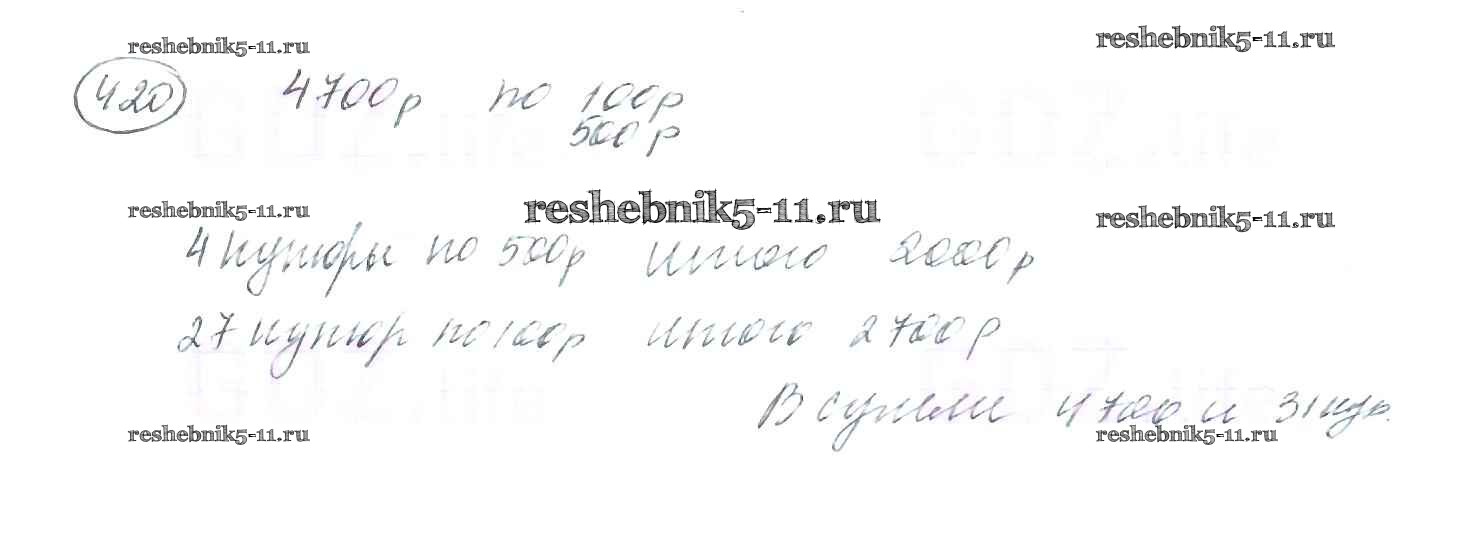 reshebnik5-11.ru reshebnik5-11.ru
420 4700р по 100р
500р
reshebnik5-11.ru reshebnik5-11.ru reshebnik5-11.ru
4 купюры по 500р итого 2000р
27 купюр по 100р итого 2700р
В сумме 4700 и 31 куп.
reshebnik5-11.ru reshebnik5-11.ru